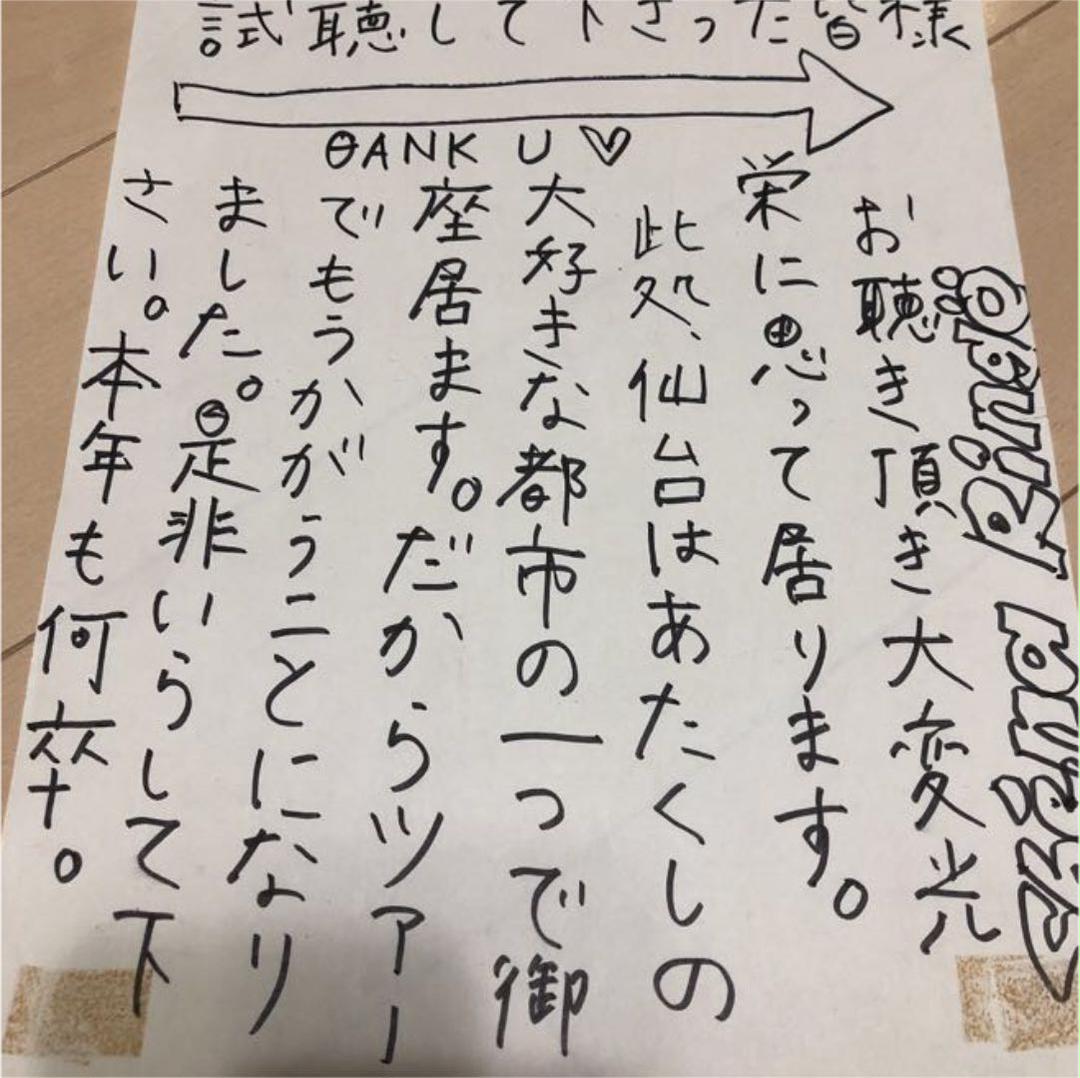 試聴して下さった皆様
ΘANK U ♡
お聴き頂き大変光
栄に思って居ります。
此処、仙台はあたくしの
大好きな都市の一つで御
座居ます。だからツアー
でもうかがうことになり
ました。是非いらして下
さい。本年も何卒。
Ringö